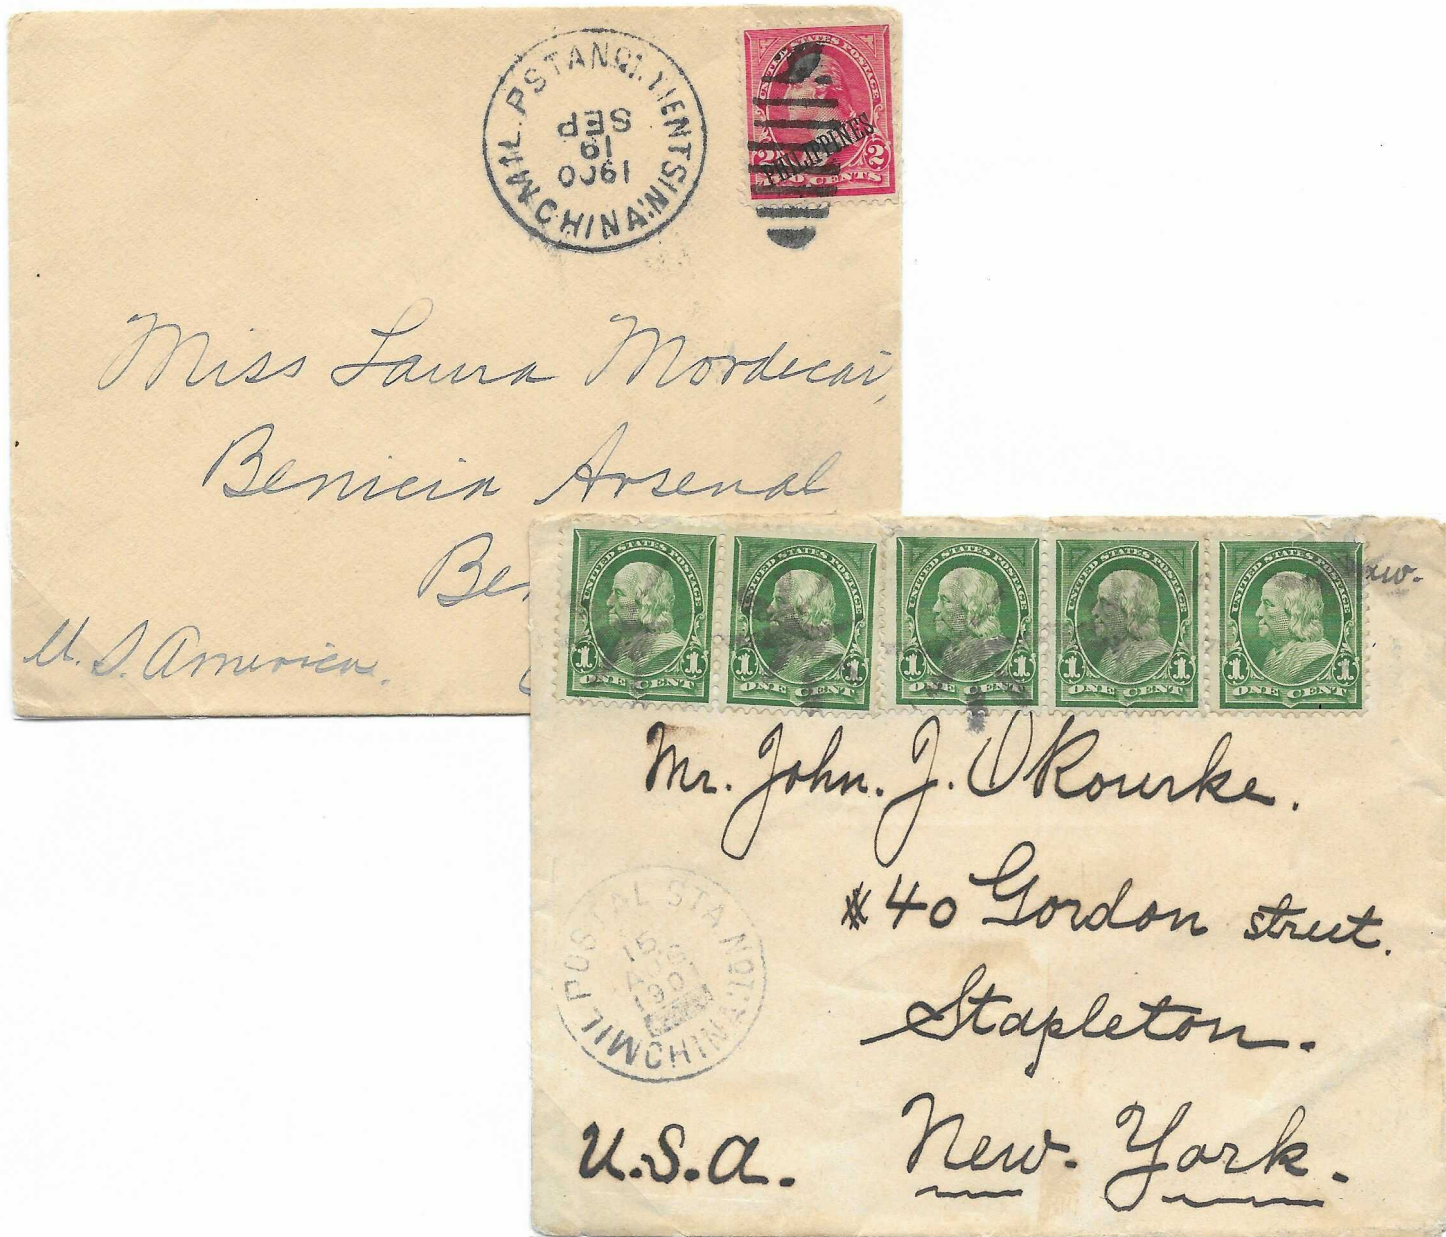 MIL. P. STA NO. 1. TIENTSIN.
CHINA.
SEP
19
1900
UNITED STATES POSTAGE
PHILIPPINES
2 2
TWO CENTS
Miss Laura Mordecai,
Benicia Arsenal
Be
U.S. America.
UNITED STATES POSTAGE
1 1
ONE CENT
UNITED STATES POSTAGE
1 1
ONE CENT
UNITED STATES POSTAGE
1 1
ONE CENT
UNITED STATES POSTAGE
1 1
ONE CENT
UNITED STATES POSTAGE
1 1
ONE CENT
Mr. John. J. O'Rourke.
#40 Gordon street.
Stapleton.
New. York.
U.S.A.
MIL POSTAL STA NO. 1.
CHINA
15
190